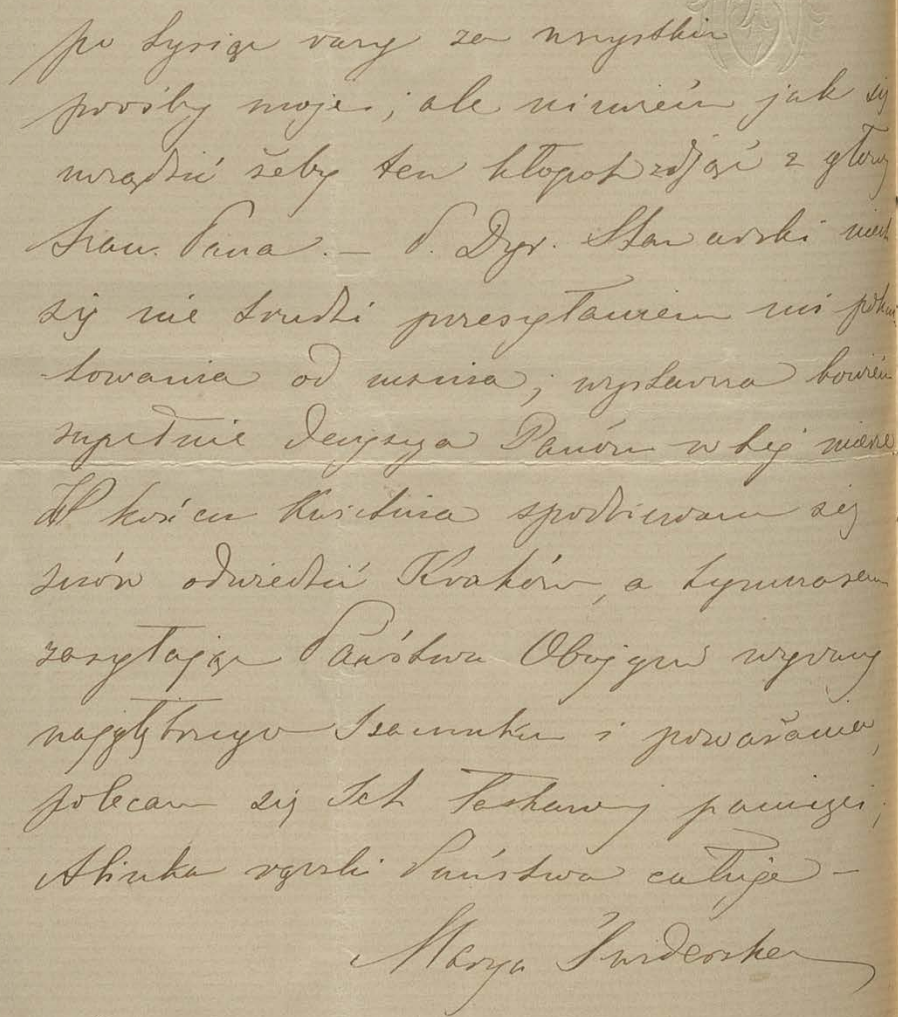 po tysiąc razy za wszystkie
prośby moje; ale niewiem jak się
urządzić żeby ten kłopot zdjąć z głowy
Szan. Pana. — P. Dyr. niech
się nie trudzi przesyłaniem mi pokwi-
towania od mnisa; wystarcza bowiem
zupełnie decyzya Panów w tej mierze
W końcu Kwietnia spodziewam się
znów odwiedzić Kraków, a tymczasem
zasyłając Państwu Obojgu wyrazy
najgłębszego szacunku i poważania,
polecam się Ich łaskawej pamięci;
Alinka rączki Państwa całuje —
Marya Świderska